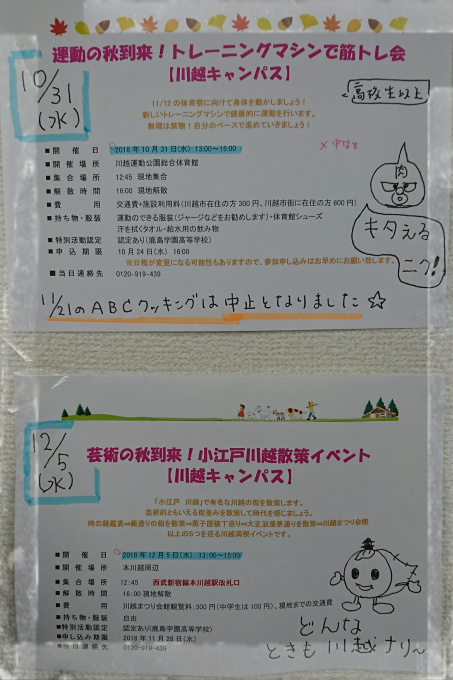 運動の秋到来！トレーニングマシンで筋トレ会
【川越キャンパス】
10/31
(水)
11/12の体育祭に向けて身体を動かしましょう！
新しいトレーニングマシンで健康的に運動を行います。
無理は禁物！自分のペースで進めていきましょう！
高校生以上
×中学生
■開催日 2018年10月31日(水) 13:00〜16:00
■開催場所 川越運動公園総合体育館
■集合場所 12:45 現地集合
■解散時間 16:00 現地解散
■費用 交通費+施設利用料（川越市在住の方300円、川越市街に在住の方600円）
■持ち物・服装 運動のできる服装（ジャージなどをお勧めします）・体育館シューズ
汗を拭くタオル・給水用の飲み物
■特別活動認定 認定あり(鹿島学園高等学校)
■申込期限 10月24日(水) 16:00
※日程が変更になる可能性もありますので、参加申し込みはお早めにお願い致します。
■当日連絡先 0120-919-439
肉
キタえる
ニク！
11/21のABCクッキングは中止となりました☆
12/5
(水)
芸術の秋到来！小江戸川越散策イベント
【川越キャンパス】
「小江戸 川越」で有名な川越の街を散策します。
芸術的ともいえる街並みを散策して時代を感じましょう。
時の鐘鑑賞⇒蔵造りの街を散策⇒菓子屋横丁巡り⇒大正浪漫夢通りを散策⇒川越まつり会館
以上の5つを巡る川越満喫イベントです。
■開催日 2018年12月5日(水) 13:00〜15:00
■開催場所 本川越周辺
■集合場所 12:45 西武新宿線本川越駅改札口
■解散時間 16:00 現地解散
■費用 川越まつり会館観覧料:300円(中学生は100円)、現地までの交通費
■持ち物・服装 自由
■特別活動認定 認定あり(鹿島学園高等学校)
■申し込み期限 2018年11月28日(水)
■当日連絡先 0120-919-439
どんな
ときも川越ナリ〜